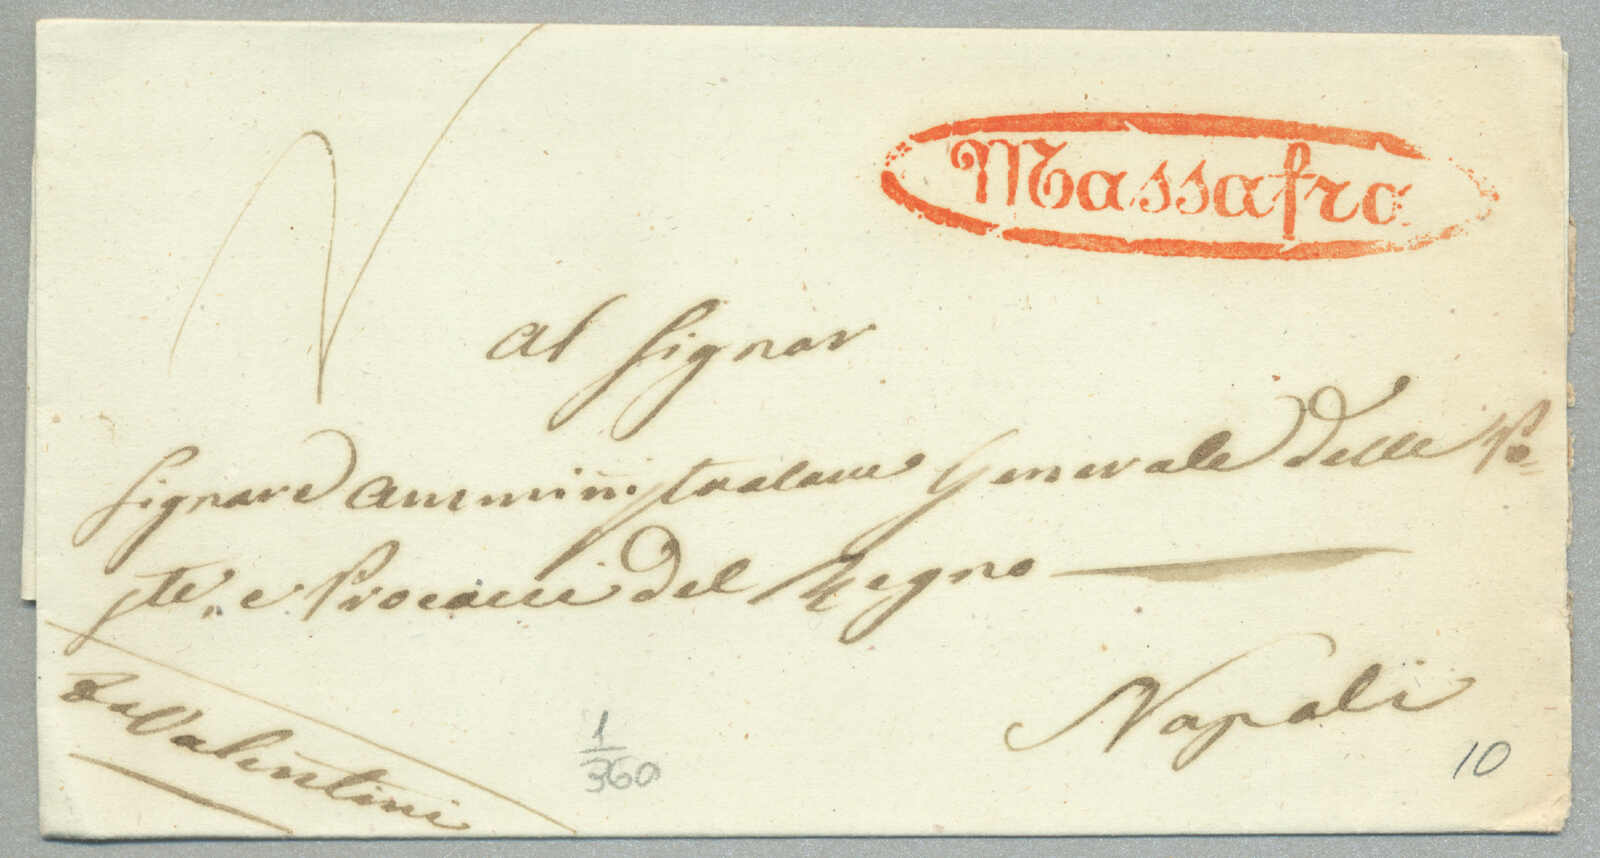 Massafra
Al Signor
Signore Amministratore Generale delle Po=
ste, e Procacci del Regno
Napoli
Da Valentini
1
360
10